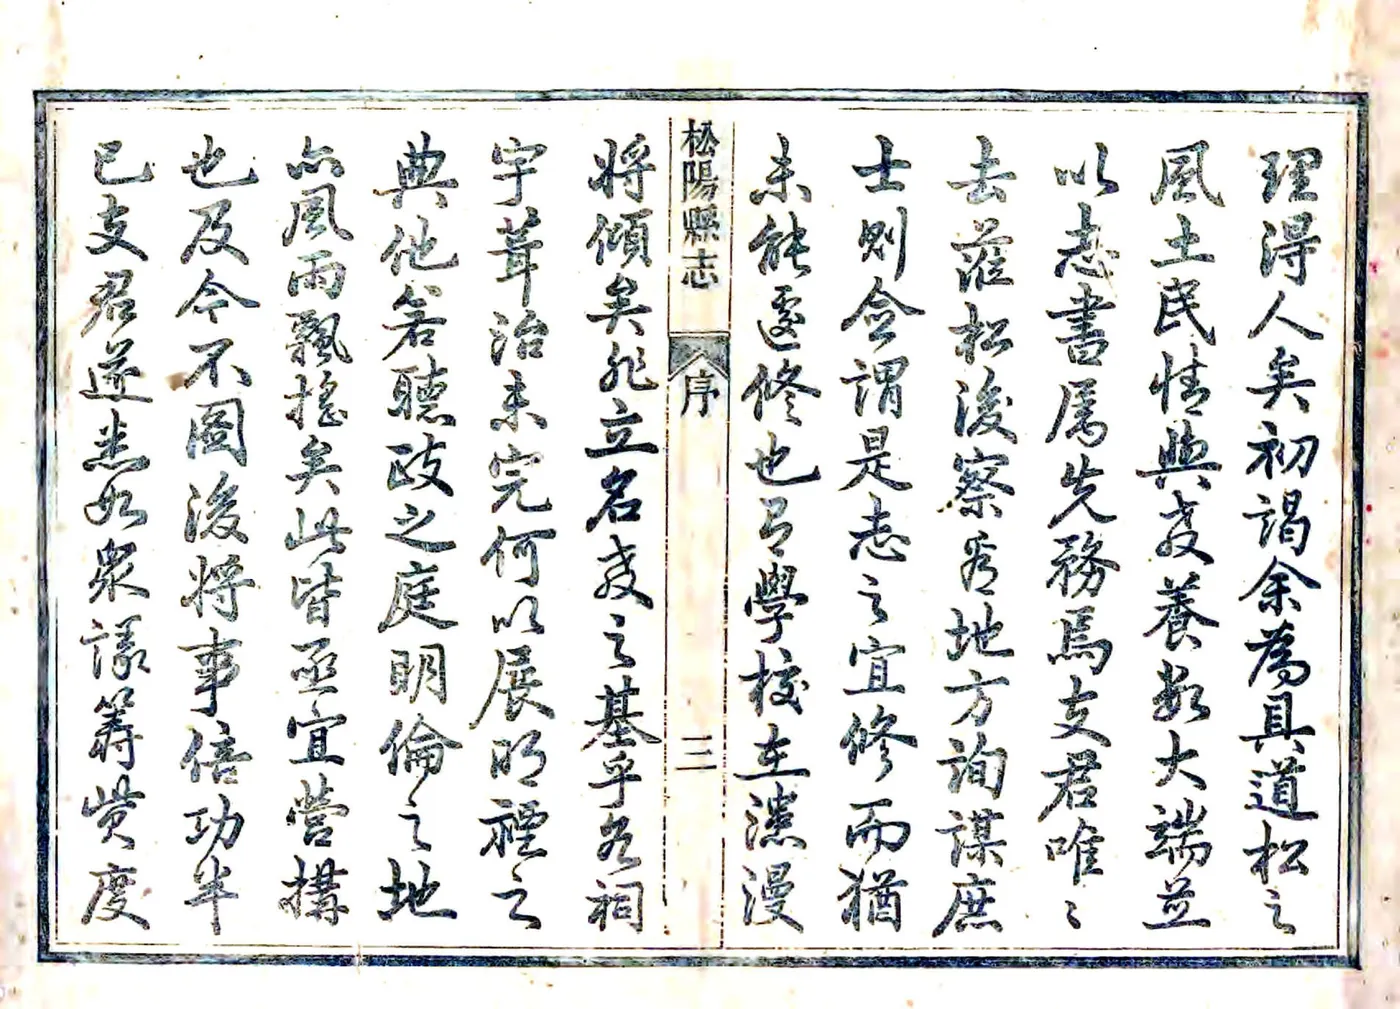 理得人矣初謁余為具道松之
風土民情與教養數大端並
以志書属先務焉支君唯〻
去蒞松後察看地方詢謀庶
士則僉謂是志之宜修而猶
未能遽修也有學校在漶漫
松陽縣志
序
三
將傾矣非立名教之基乎各祠
宇葺治未完何以展明禋之
典他若聽政之庭明倫之地
亦風雨飄搖矣此皆亟宜營構
也及今不圖後將事倍功半
已支君遂悉如眾議籌貲度